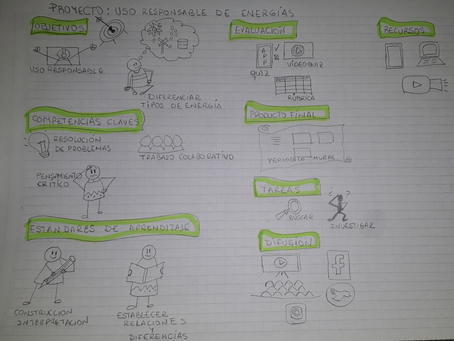 PROYECTO: USO RESPONSABLE DE ENERGÍAS
OBJETIVOS
USO RESPONSABLE
DIFERENCIAR
TIPOS DE ENERGÍA
COMPETENCIAS CLAVES
RESOLUCIÓN
DE PROBLEMAS
TRABAJO COLABORATIVO
PENSAMIENTO
CRÍTICO
ESTÁNDARES DE APRENDIZAJE
CONSTRUCCIÓN
INTERPRETACIÓN
ESTABLECER
RELACIONES
Y
DIFERENCIAS
EVALUACIÓN
QUIZ
VIDEOQUIZ
RÚBRICA
PRODUCTO FINAL
PERIÓDICO MURAL
TAREAS
BUSCAR
INVESTIGAR
DIFUSIÓN
f
RECURSOS